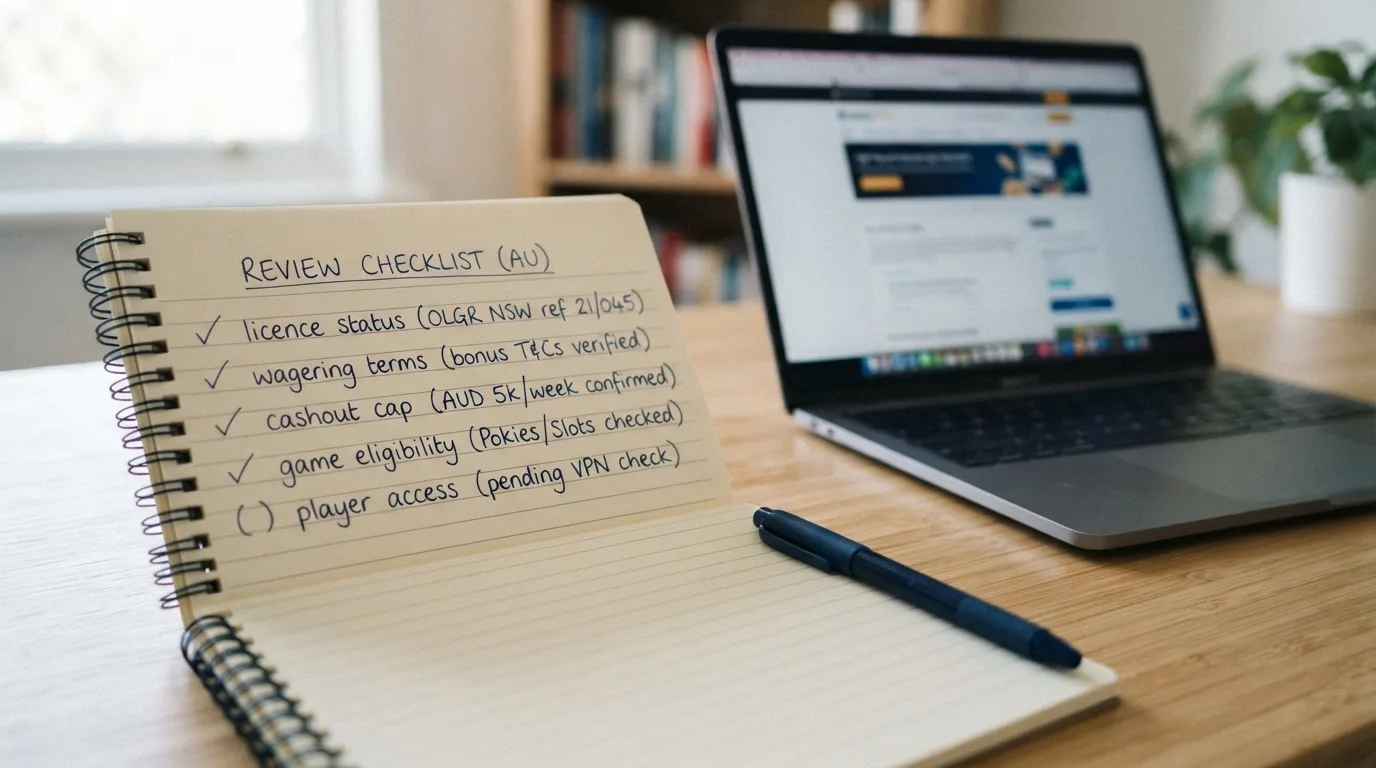 REVIEW CHECKLIST (AU)
✓ licence status (OLGR NSW ref 21/045)
✓ wagering terms (bonus T&Cs verified)
✓ cashout cap (AUD 5k/week confirmed)
✓ game eligibility (Pokies/Slots checked)
( ) player access (pending VPN check)